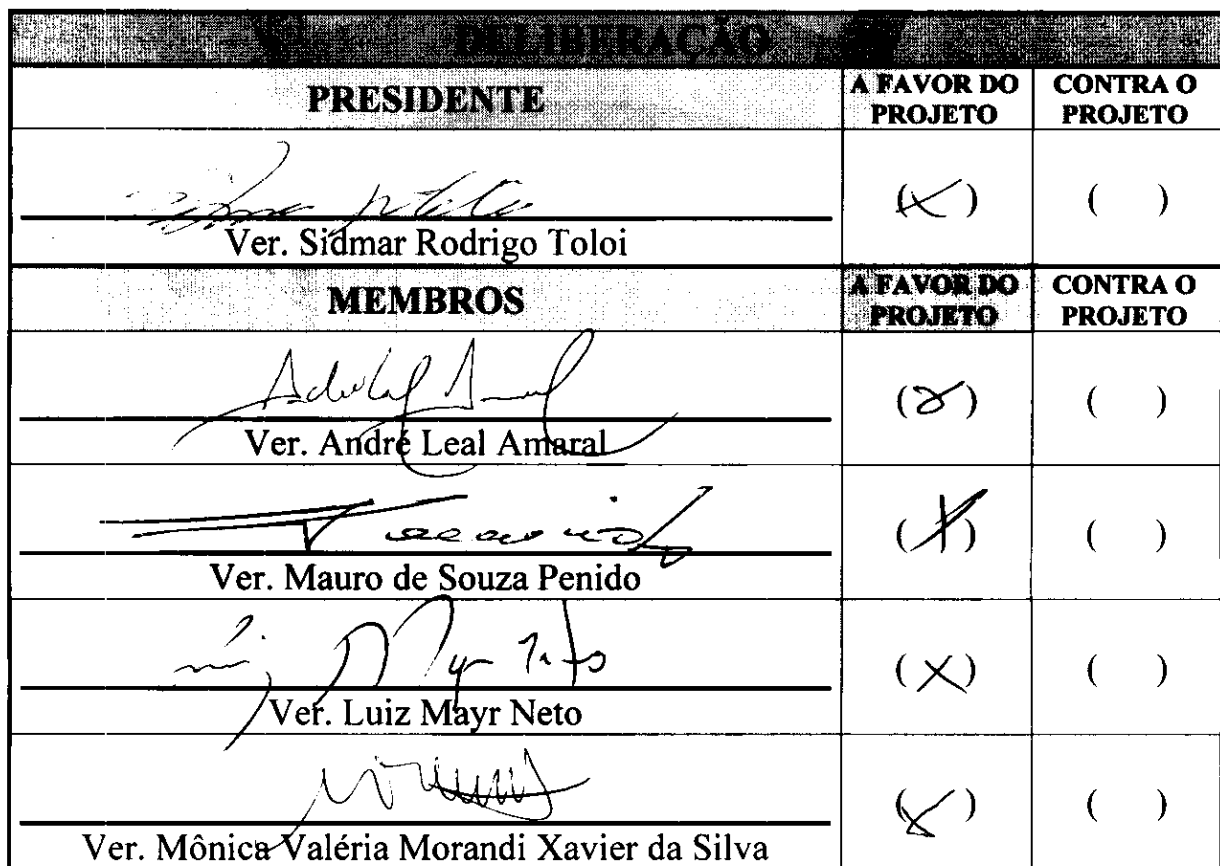 DELIBERAÇÃO
PRESIDENTE
A FAVOR DO PROJETO
CONTRA O PROJETO
Ver. Sidmar Rodrigo Toloi
( X )
( )
MEMBROS
A FAVOR DO PROJETO
CONTRA O PROJETO
Ver. André Leal Amaral
( X )
( )
Ver. Mauro de Souza Penido
( X )
( )
Ver. Luiz Mayr Neto
( X )
( )
Ver. Mônica Valéria Morandi Xavier da Silva
( X )
( )